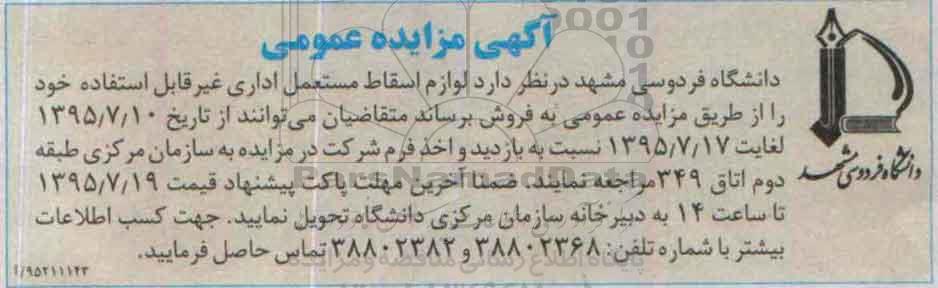 آگهی مزایده عمومی
دانشگاه فردوسی مشهد درنظر دارد لوازم اسقاط مستعمل اداری غیرقابل استفاده خود
را از طریق مزایده عمومی به فروش برساند متقاضیان می‌توانند از تاریخ ۱۳۹۵/۷/۱۰
لغایت ۱۳۹۵/۷/۱۷ نسبت به بازدید و اخذ فرم شرکت در مزایده به سازمان مرکزی طبقه
دوم اتاق ۳۴۹ مراجعه نمایند. ضمنا آخرین مهلت پاکت پیشنهاد قیمت ۱۳۹۵/۷/۱۹
تا ساعت ۱۴ به دبیرخانه سازمان مرکزی دانشگاه تحویل نمایید. جهت کسب اطلاعات
بیشتر با شماره تلفن: ۳۸۸۰۲۳۶۸ و ۳۸۸۰۲۳۸۲ تماس حاصل فرمایید.
/۹۵۲۱۱۱۲۳
دانشگاه فردوسی مشهد
ParsNamadData